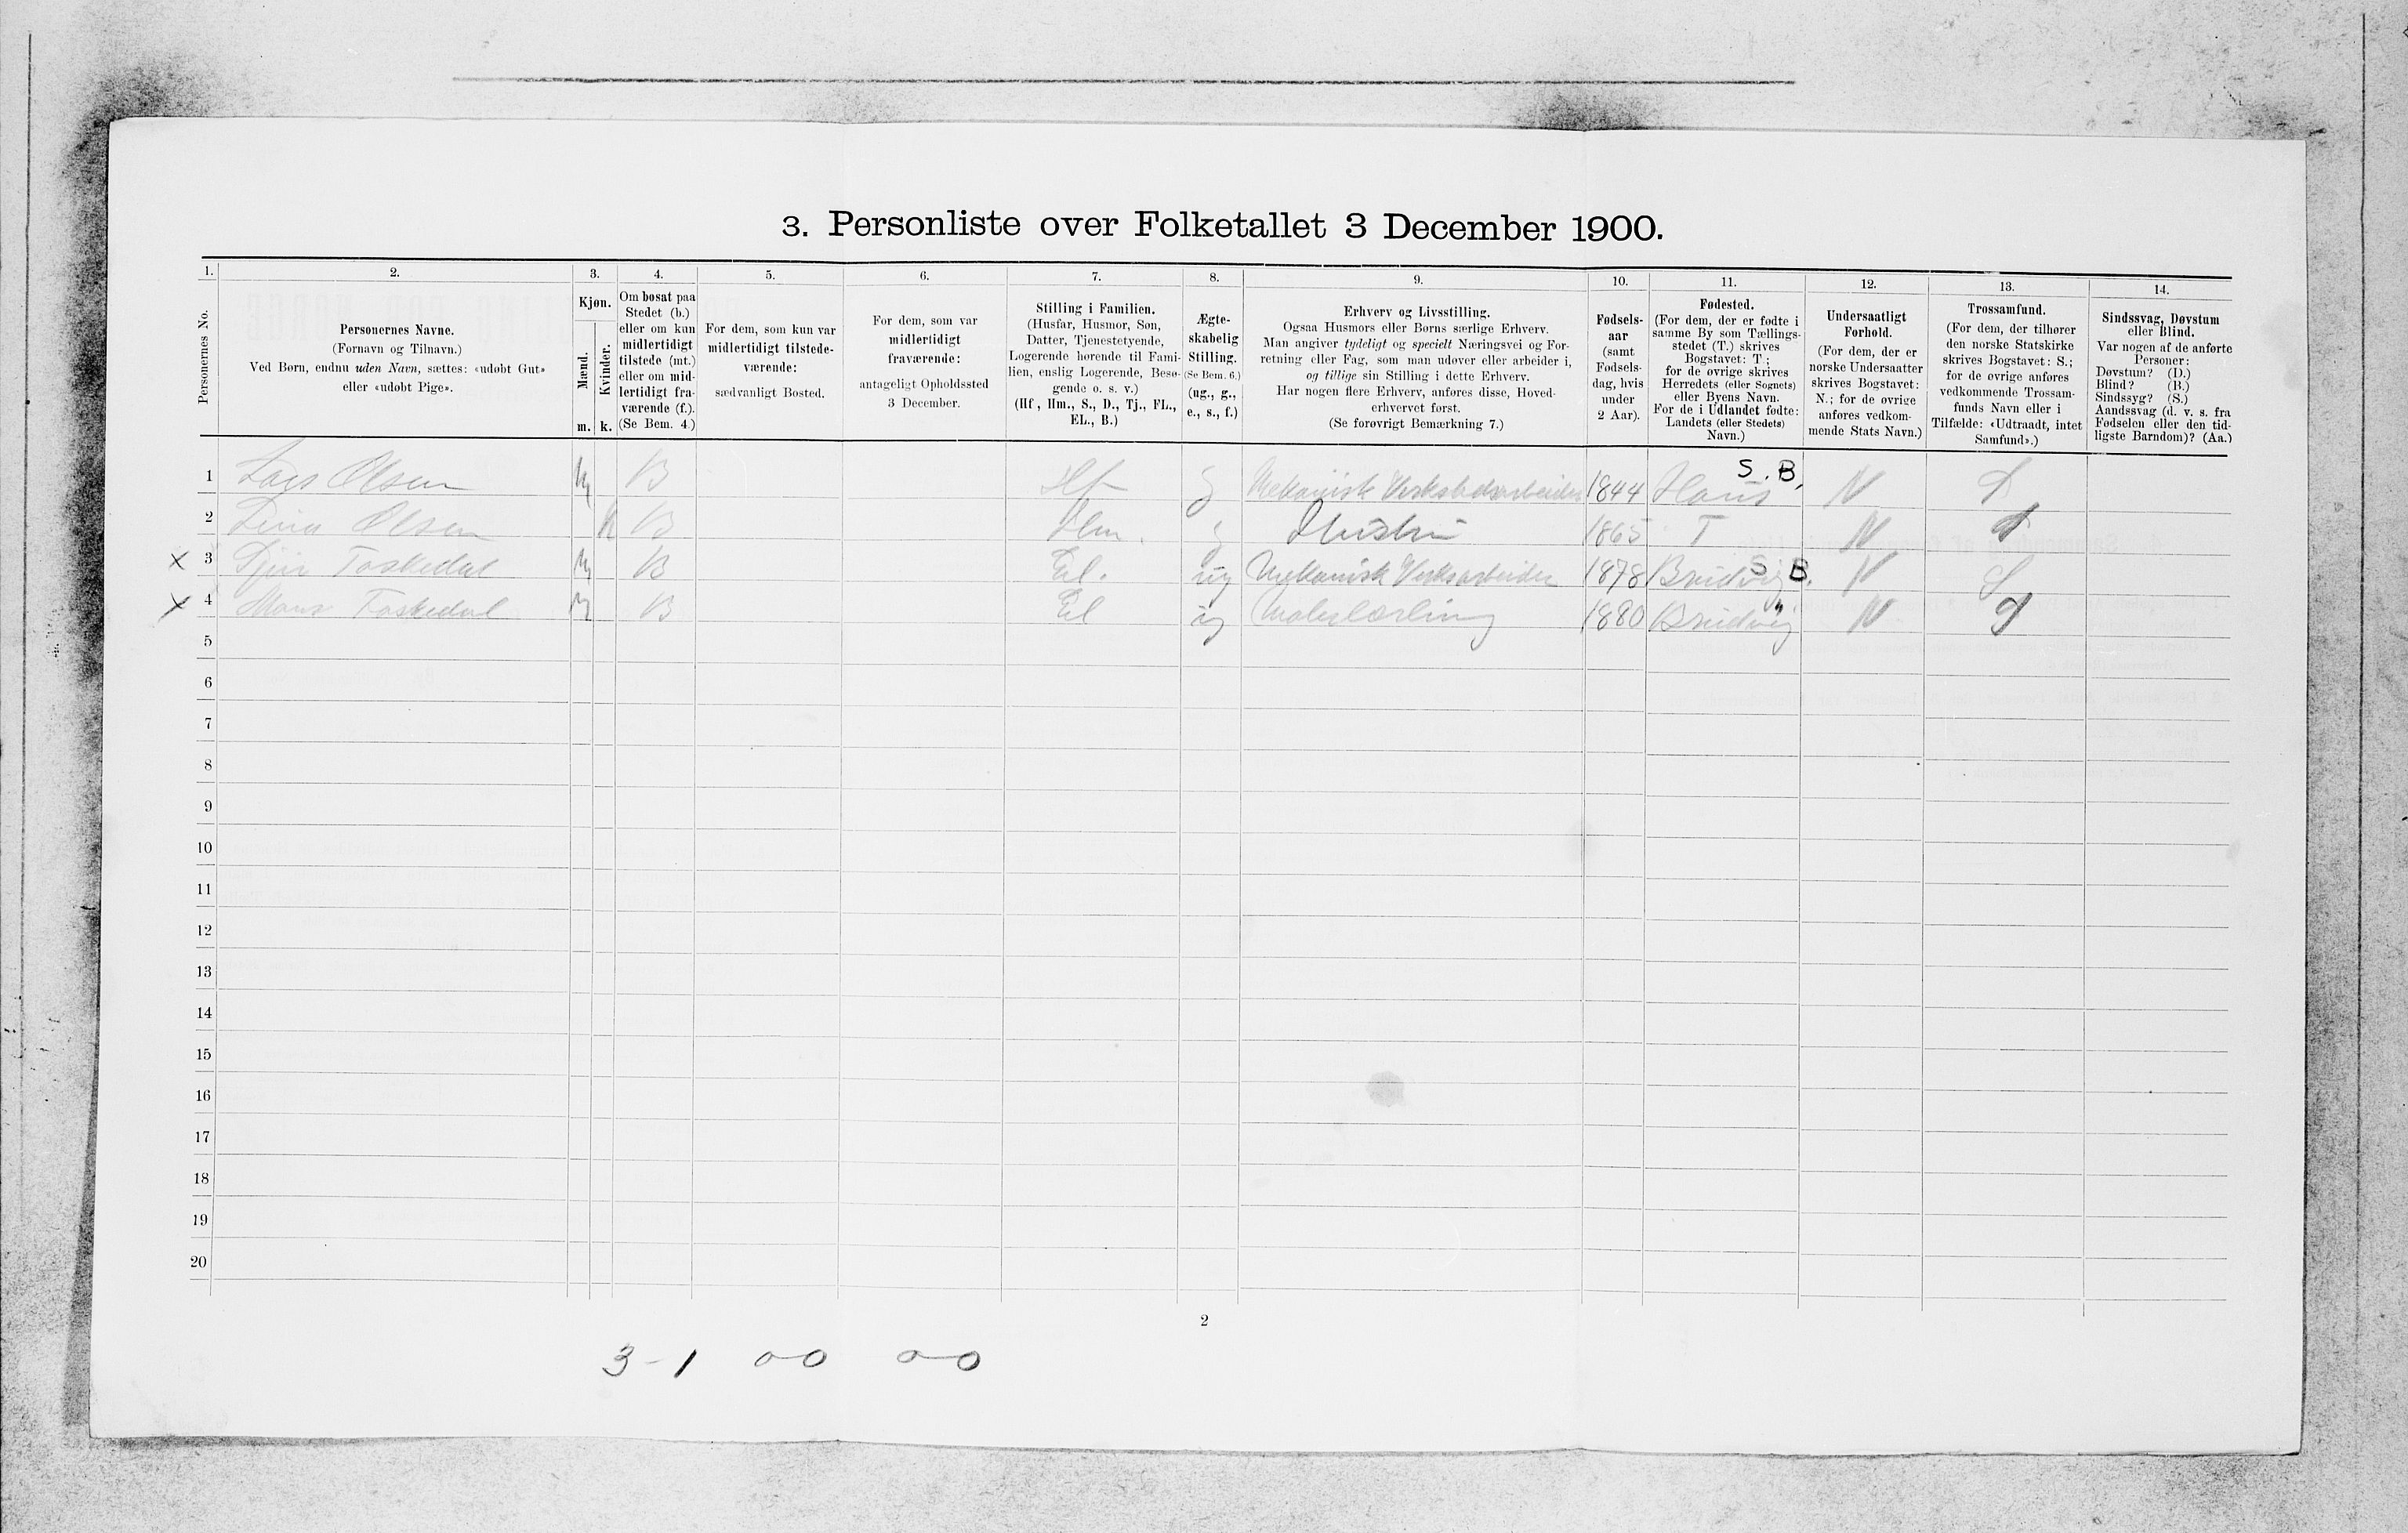 3. Personliste over Folketallet 3 December 1900.
1. 2. 3. 4. 5. 6. 7. 8. 9. 10. 11. 12. 13. 14.
Personernes No.
Personernes Navne.
(Fornavn og Tilnavn.)
Ved Børn, endnu uden Navn, sættes: «udøbt Gut»
eller «udøbt Pige».
Kjøn.
Mænd.
Kvinder.
m. k.
Om bosat paa
Stedet (b.)
eller om kun
midlertidigt
tilstede (mt.)
eller om mid-
lertidigt fra-
værende (f.).
(Se Bem. 4.)
For dem, som kun var
midlertidigt tilstede-
værende:
sædvanligt Bosted.
For dem, som var
midlertidigt
fraværende:
antageligt Opholdssted
3 December.
Stilling i Familien.
(Husfar, Husmor, Søn,
Datter, Tjenestetyende,
Logerende hørende til Fami-
lien, enslig Logerende, Besø-
gende o. s. v.)
(Hf, Hm., S., D., Tj., FL.,
EL., B.)
Ægte-
skabelig
Stilling.
(Se Bem. 6.)
(ug., g.,
e., s., f.)
Erhverv og Livsstilling.
Ogsaa Husmors eller Børns særlige Erhverv.
Man angiver tydeligt og specielt Næringsvei og For-
retning eller Fag, som man udøver eller arbeider i,
og tillige sin Stilling i dette Erhverv.
Har nogen flere Erhverv, anføres disse, Hoved-
erhvervet først.
(Se forøvrigt Bemærkning 7.)
Fødsels-
aar
(samt
Fødsels-
dag, hvis
under
2 Aar).
Fødested.
(For dem, der er fødte i
samme By som Tællings-
stedet (T.) skrives
Bogstavet: T.;
for de øvrige skrives
Herredets (eller Sognets)
eller Byens Navn.
For de i Udlandet fødte:
Landets (eller Stedets)
Navn.)
Undersaatligt
Forhold.
(For dem, der er
norske Undersaatter
skrives Bogstavet:
N.; for de øvrige
anføres vedkom-
mende Stats Navn.)
Trossamfund.
(For dem, der tilhører
den norske Statskirke
skrives Bogstavet: S.;
for de øvrige anføres
vedkommende Trossam-
funds Navn eller i
Tilfælde: «Udtraadt, intet
Samfund».)
Sindssvag, Døvstum
eller Blind.
Var nogen af de anførte
Personer:
Døvstum? (D.)
Blind? (B.)
Sindssyg? (S.)
Aandssvag (d. v. s. fra
Fødselen eller den tid-
ligste Barndom)? (Aa.)
S. B.
1 Lars Olsen M B Hf g Mekanisk Verkstedsarbeider 1844 Haus N S
2 Lina Olsen K B Hm. g Hustru 1865 T N S
S B.
x 3 Toskedal M B El. ug Mekanisk Verksarbeider 1878 Brudvig N S
x 4 Mons Toskedal M B El ug Malerlærling 1880 Brudvig " N S
5
6
7
8
9
10
11
12
13
14
15
16
17
18
19
20
2
3 - 1 0-0 0-0